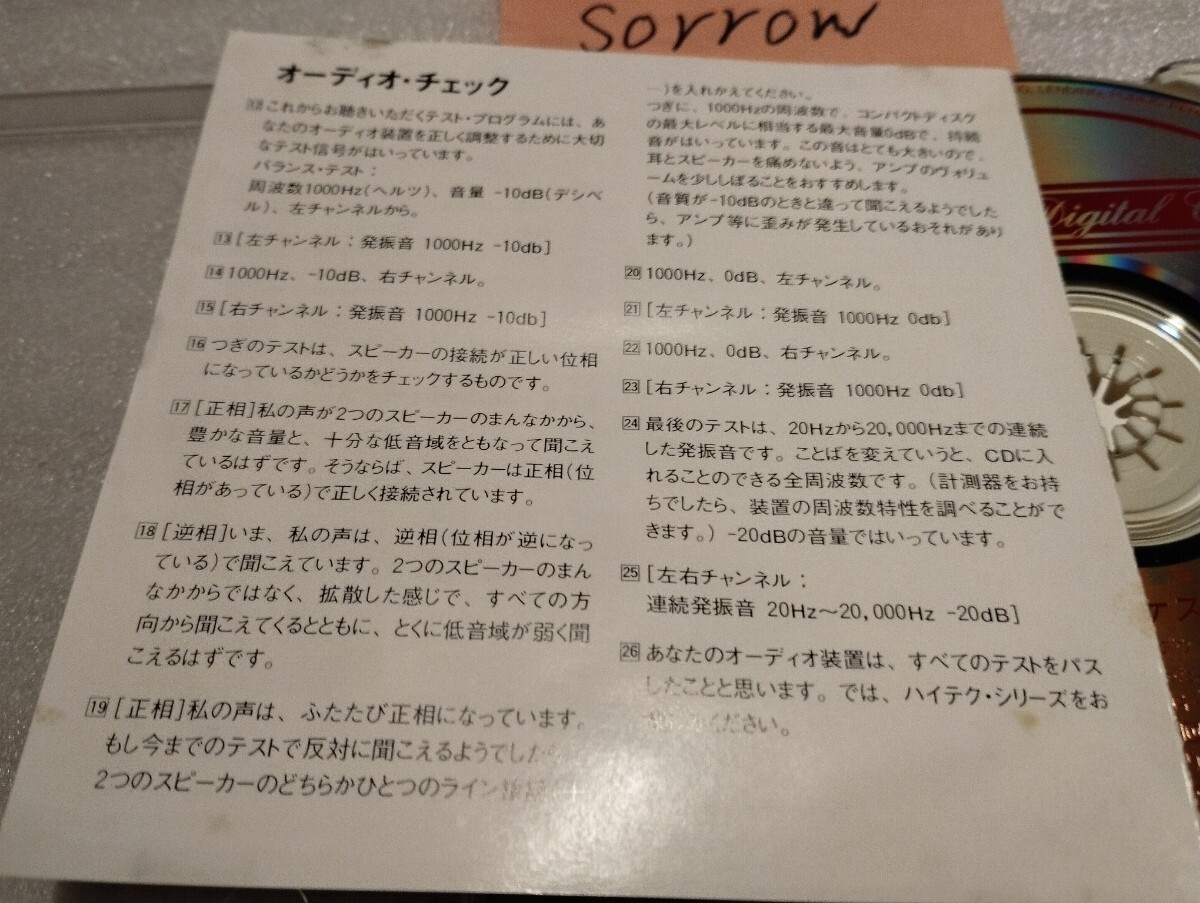 sorrow
オーディオ・チェック
12 これからお聴きいただくテスト・プログラムには、あ
なたのオーディオ装置を正しく調整するために大切
なテスト信号がはいっています。
バランス・テスト：
周波数1000Hz(ヘルツ)、音量 -10dB(デシベ
ル)、左チャンネルから。
13 [左チャンネル：発振音 1000Hz -10db]
14 1000Hz、-10dB、右チャンネル。
15 [右チャンネル：発振音 1000Hz -10db]
16 つぎのテストは、スピーカーの接続が正しい位相
になっているかどうかをチェックするものです。
17 [正相]私の声が2つのスピーカーのまんなかから、
豊かな音量と、十分な低音域をともなって聞こえ
ているはずです。そうならば、スピーカーは正相(位
相があっている)で正しく接続されています。
18 [逆相]いま、私の声は、逆相(位相が逆になっ
ている)で聞こえています。2つのスピーカーのまん
なかからではなく、拡散した感じで、すべての方
向から聞こえてくるとともに、とくに低音域が弱く聞
こえるはずです。
19 [正相]私の声は、ふたたび正相になっています。
もし今までのテストで反対に聞こえるようでした
2つのスピーカーのどちらかひとつのライン
ー)を入れかえてください。
つぎに、1000Hzの周波数で、コンパクトディスク
の最大レベルに相当する最大音量0dBで、持続
音がはいっています。この音はとても大きいので、
耳とスピーカーを痛めないよう、アンプのヴォリュ
ームを少ししぼることをおすすめします。
(音質が-10dBのときと違って聞こえるようでした
ら、アンプ等に歪みが発生しているおそれがあり
ます。)
20 1000Hz、0dB、左チャンネル。
21 [左チャンネル：発振音 1000Hz 0db]
22 1000Hz、0dB、右チャンネル。
23 [右チャンネル：発振音 1000Hz 0db]
24 最後のテストは、20Hzから20,000Hzまでの連続
した発振音です。ことばを変えていうと、CDに入
れることのできる全周波数です。(計測器をお持
ちでしたら、装置の周波数特性を調べることがで
きます。) -20dBの音量ではいっています。
25 [左右チャンネル：
連続発振音 20Hz～20,000Hz -20dB]
26 あなたのオーディオ装置は、すべてのテストをパス
したことと思います。では、ハイテク・シリーズをお
ください。
Digital